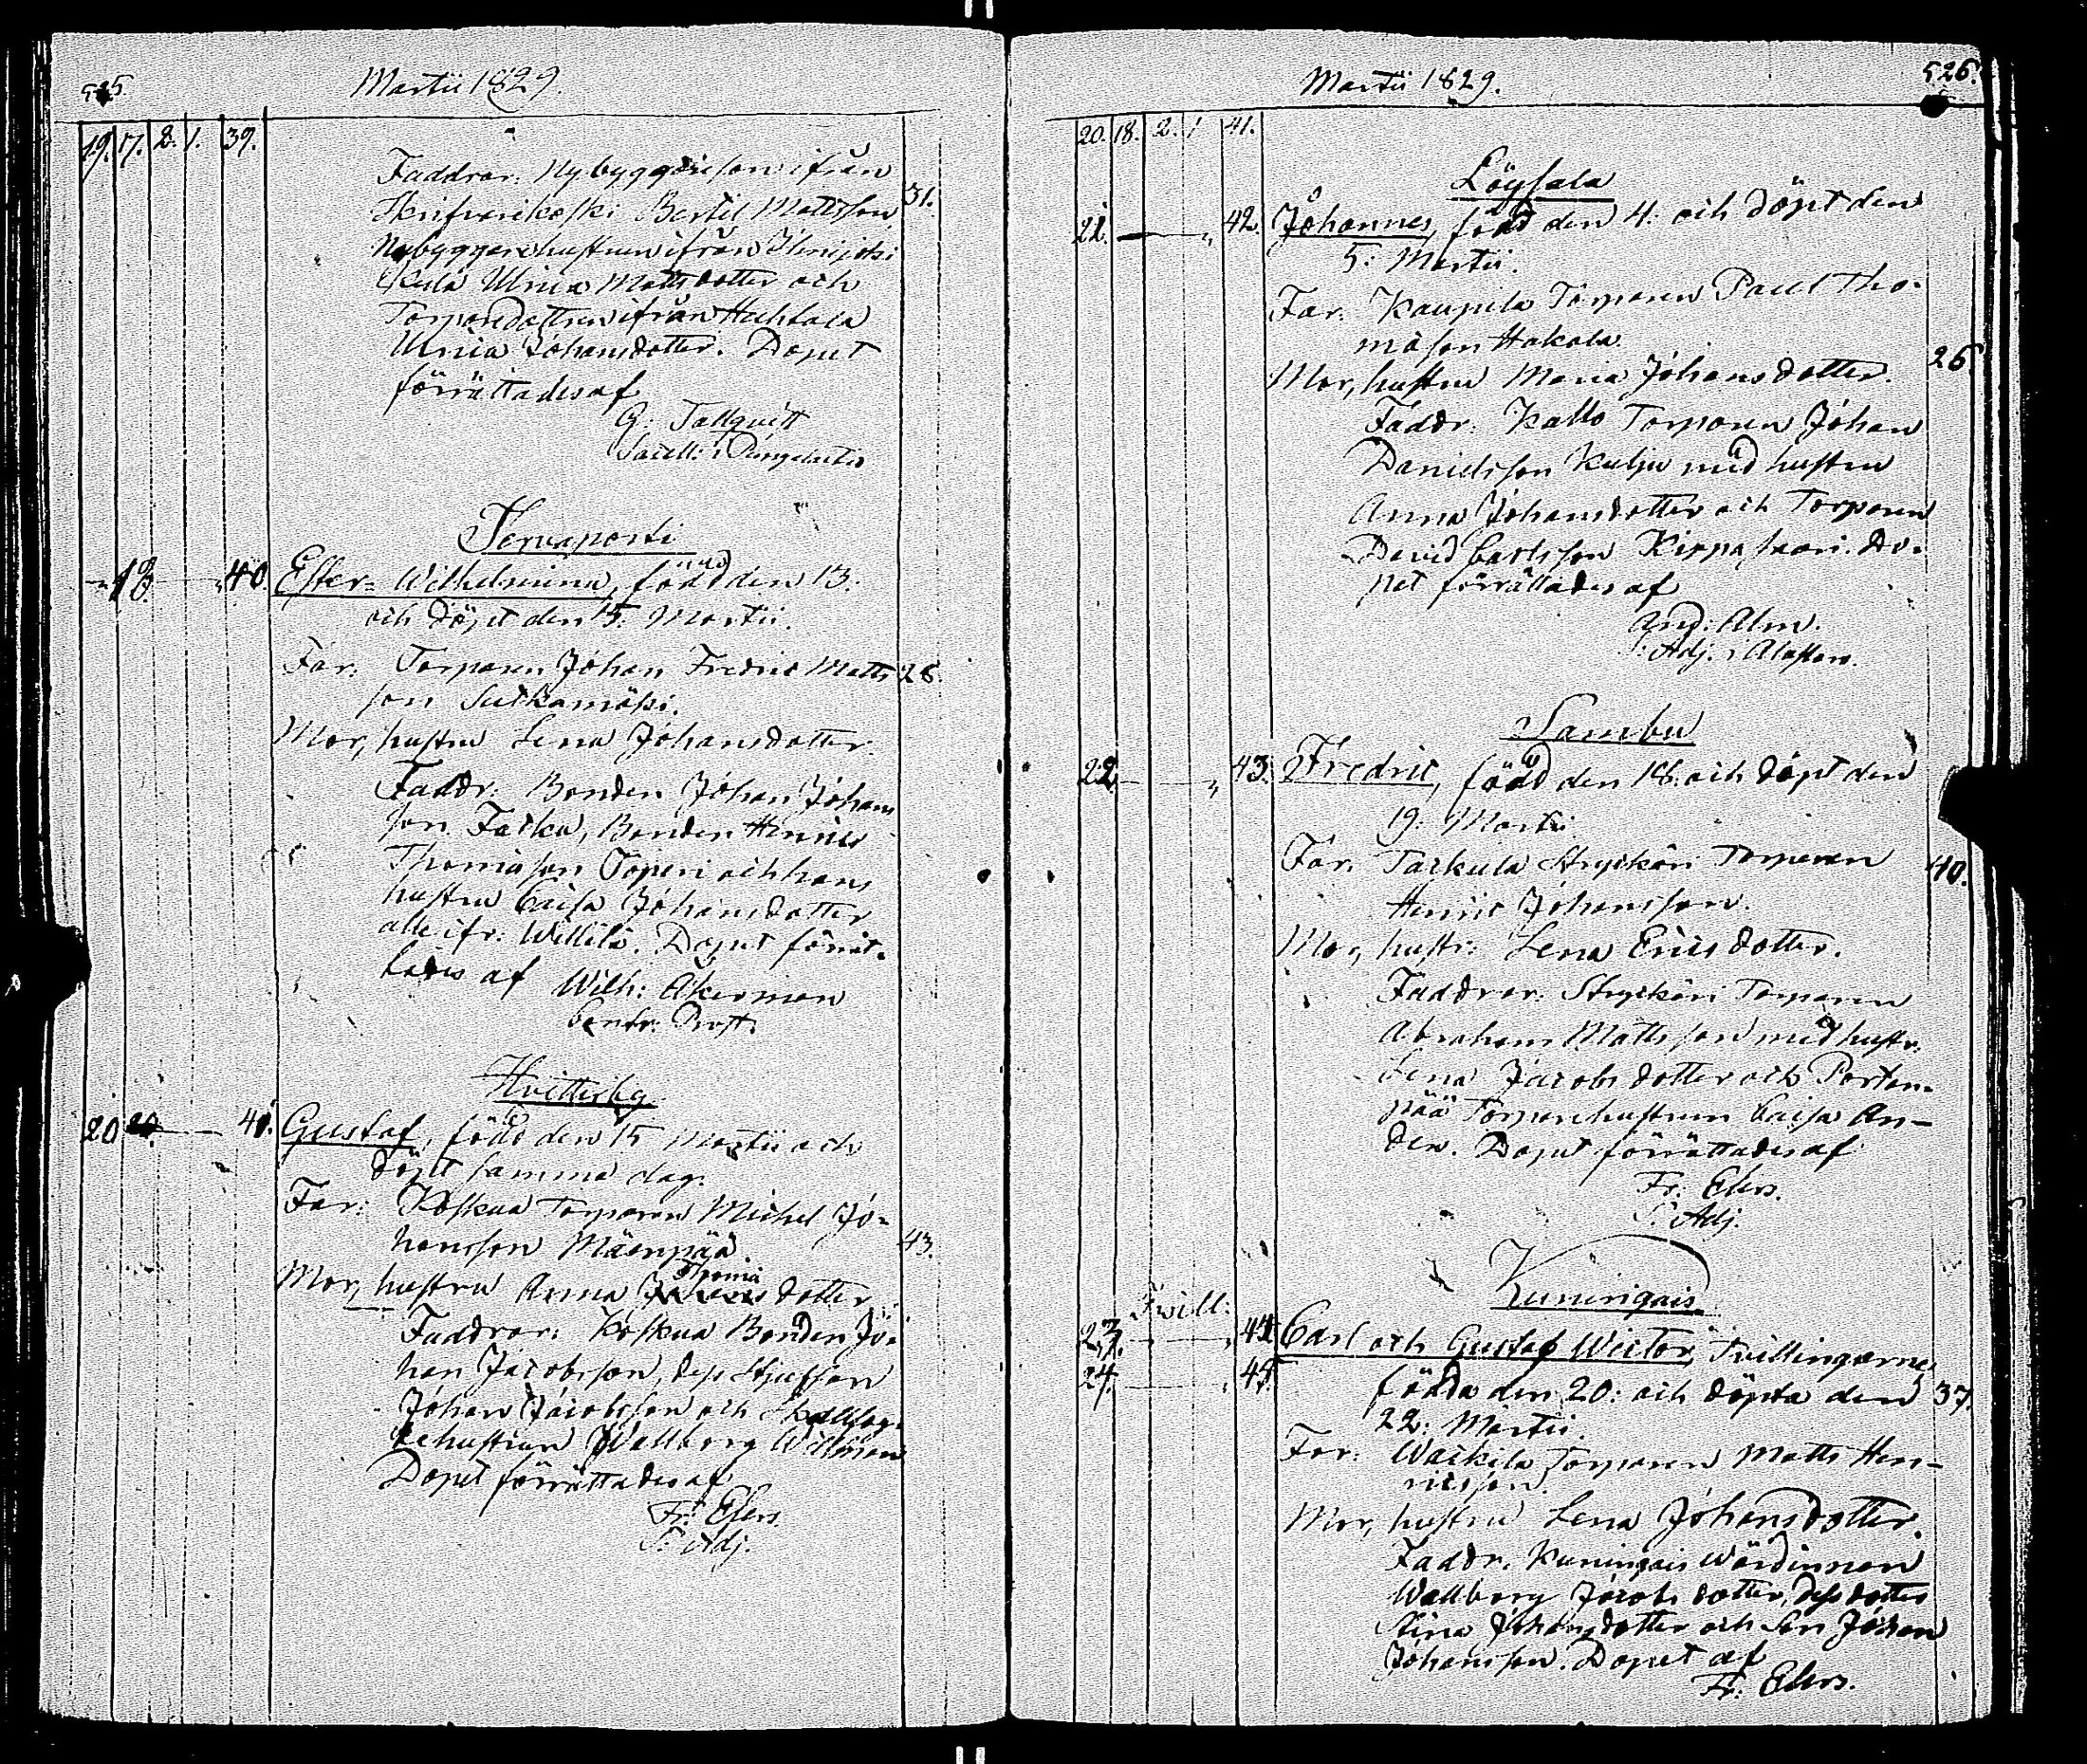 525. Martii 1829.
19. 17. 2. 1. 39.
Faddrar: Nybyggaresson ifrån
Bertil Mattsson 31.
Nybyggarehustrun ifrån Ilmijoki
Ulrica Mattsdotter och
Torparedottren ifrån Huhtala
Ulrica Johansdotter. Dopet
förrättades af
G: Tallqvist
Sacell: i
Tervaporti
18. 40. Ester Wilhelmina, född den 13.
och döpt den 15. Martii.
Far: Torparen Johan Fredric Matts 28.
son Sulkamäki.
Mor, hustru Lena Johansdotter.
Faddr: Bonden Johan Johans
son Facku, Bonden Henric
Thomasson Töperi och hans
hustru Caisa Johansdotter
alle ifr: Willilä. Dopet förrät-
tades af Wilh: Åkerman
Contr: Prost.
Hvitterby
20 20. 41. Gustaf, född den 15 Martii och
döpt samma dag.
Far: Koskua Torparen Michel Jo-
hansson Mäenpää. 43.
Mor, hustru Anna Thomædotter
Faddrar: Koskua Bonden Jo-
han Jacobsson, dess Styfson
Johan Jacobsson och
hustrun Wallborg
Dopet förrättades af
Fr: Elers.
P. Adj.
Martii 1829. 526.
20. 18. 2. 1 41.
Löysala
21. 42. Johannes, född den 4: och döpt den
5: Martii.
Far: Kaupila Torparen Paul Tho-
mæson Hakola.
Mor, hustru Maria Johansdotter. 26
Faddr: Kallo Torparen Johan
Danielsson Kulju med hustru
Anna Johansdotter och Torparen
David Carlsson Kirppusaari. Do-
pet förrättades af
And: Alm.
P: Adj. i Alastaro.
Sambu
22. 43. Fredric, född den 18. och döpt den
19. Martii.
Far. Tarkula Stryckäri Torparen 40.
Henric Johansson.
Mor, hustr: Lena Ericsdotter.
Faddrar: Stryckäri Torparen
Abraham Mattsson med hustr.
Lena Jacobsdotter och Porten-
pää Torparehustrun Caisa An-
dersd. Dopet förrättades af
Fr: Elers.
P. Adj.
Kuningais.
Tvill:
23. 44. Carl och Gustaf Wictor, Tvillingarne,
24. 45. födda den 20: och döpta den 37.
22: Martii.
Far: Wäckilä Torparen Matts Hen-
ricsson.
Mor, hustru Lena Johansdotter.
Faddr: Kuningais Wärdinnan
Wallborg Jacobsdotter, dess dotter
Stina Johansdotter och Son Johan
Johansson. Dopet af
Fr: Elers.